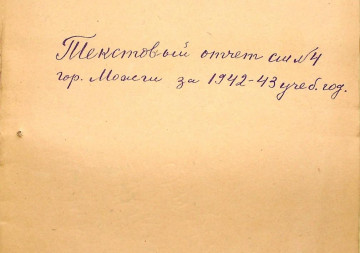 Текстовый отчет сш №4
гор. Можги за 1942-43 учеб. год.